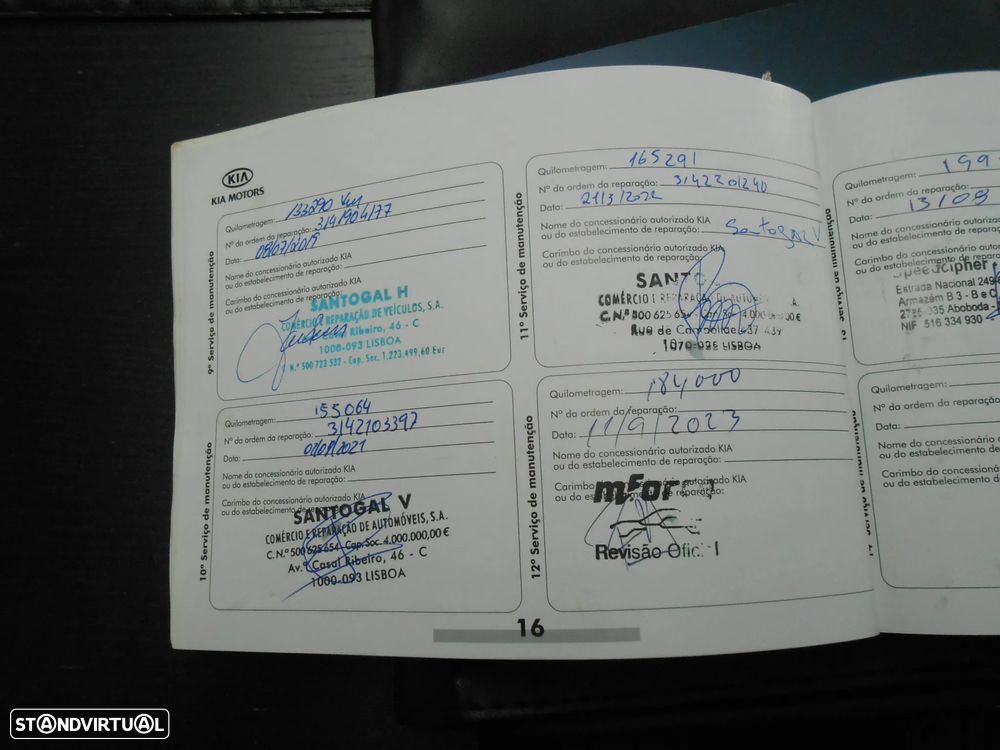 KIA
KIA MOTORS
9º Serviço de manutenção
Quilometragem: 133290 Km
Nº da ordem da reparação: 3141904177
Data: 08/07/2019
Nome do concessionário autorizado KIA
ou do estabelecimento de reparação:
Carimbo do concessionário autorizado KIA
ou do estabelecimento de reparação:
SANTOGAL H
COMÉRCIO E REPARAÇÃO DE VEÍCULOS, S.A.
Casal Ribeiro, 46 - C
1000-093 LISBOA
N.º 500 723 532 - Cap. Soc. 1.223.499,60 Eur
10º Serviço de manutenção
Quilometragem: 155064
Nº da ordem da reparação: 3142103397
Data:
Nome do concessionário autorizado KIA
ou do estabelecimento de reparação:
Carimbo do concessionário autorizado KIA
ou do estabelecimento de reparação:
SANTOGAL V
COMÉRCIO E REPARAÇÃO DE AUTOMÓVEIS, S.A.
C. N.º 500 625 654 Cap. Soc. 4.000.000,00 €
Av.ª Casal Ribeiro, 46 - C
1000-093 LISBOA
11º Serviço de manutenção
Quilometragem: 165291
Nº da ordem da reparação: 3142201240
Data: 21/3/2022
Nome do concessionário autorizado KIA
ou do estabelecimento de reparação: Santogal V
Carimbo do concessionário autorizado KIA
ou do estabelecimento de reparação:
SANTO
COMÉRCIO E REPARAÇÃO DE AUTOM A.
C. N.º 500 625 654 Cap. Soc. 4.000.000,00€
Rua de Campolide 437 439
1070-026 LISBOA
12º Serviço de manutenção
Quilometragem: 184000
Nº da ordem da reparação:
Data: 11/9/2023
Nome do concessionário autorizado KIA
ou do estabelecimento de reparação:
Carimbo do concessionário autorizado KIA
ou do estabelecimento de reparação:
mFor
Revisão Oficial
16
Quilometragem: 199
Nº da ordem da reparação
Data: 13/09
Nome do concessionário
ou do estabelecimento
Carimbo do concessionário
ou do estabelecimento de
Speedcipher
Estrada Nacional 249
Armazém B 3 - B e C
2785-035 Aboboda -
NIF 516 334 930
Quilometragem:
Nº da ordem da reparação
Data:
Nome do concessionário
ou do estabelecimento
Carimbo do concessionário
ou do estabelecimento de
STANDVIRTUAL